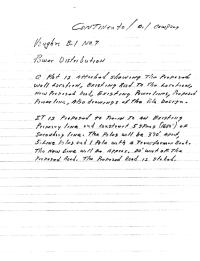 Continental / B.I. Company
Vaughn B.I No. 9
Power Distribution
A Plat is Attached showing The Proposed
Well Location, Existing Road To The Location,
New Proposed Road, Existing Powerlines, Proposed
Powerline, Also drawings of The Line Design.
IT is Proposed to Turn To an Existing
Primary line and construct 5 spans of
Secondary line. The Poles will be 370' apart,
5 Line Poles and 1 Pole with a Transformer Bank.
The New Line will be Approx. 20' west of The
Proposed Road. The Proposed Road is staked.